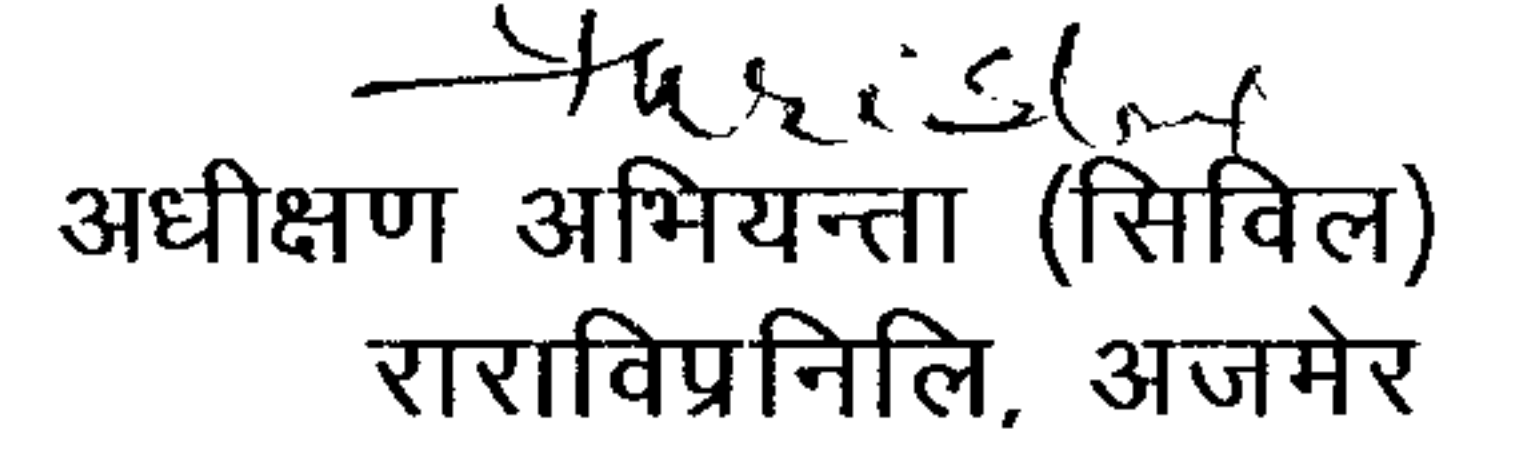 अधीक्षण अभियन्ता (सिविल)
राराविप्रनिलि, अजमेर